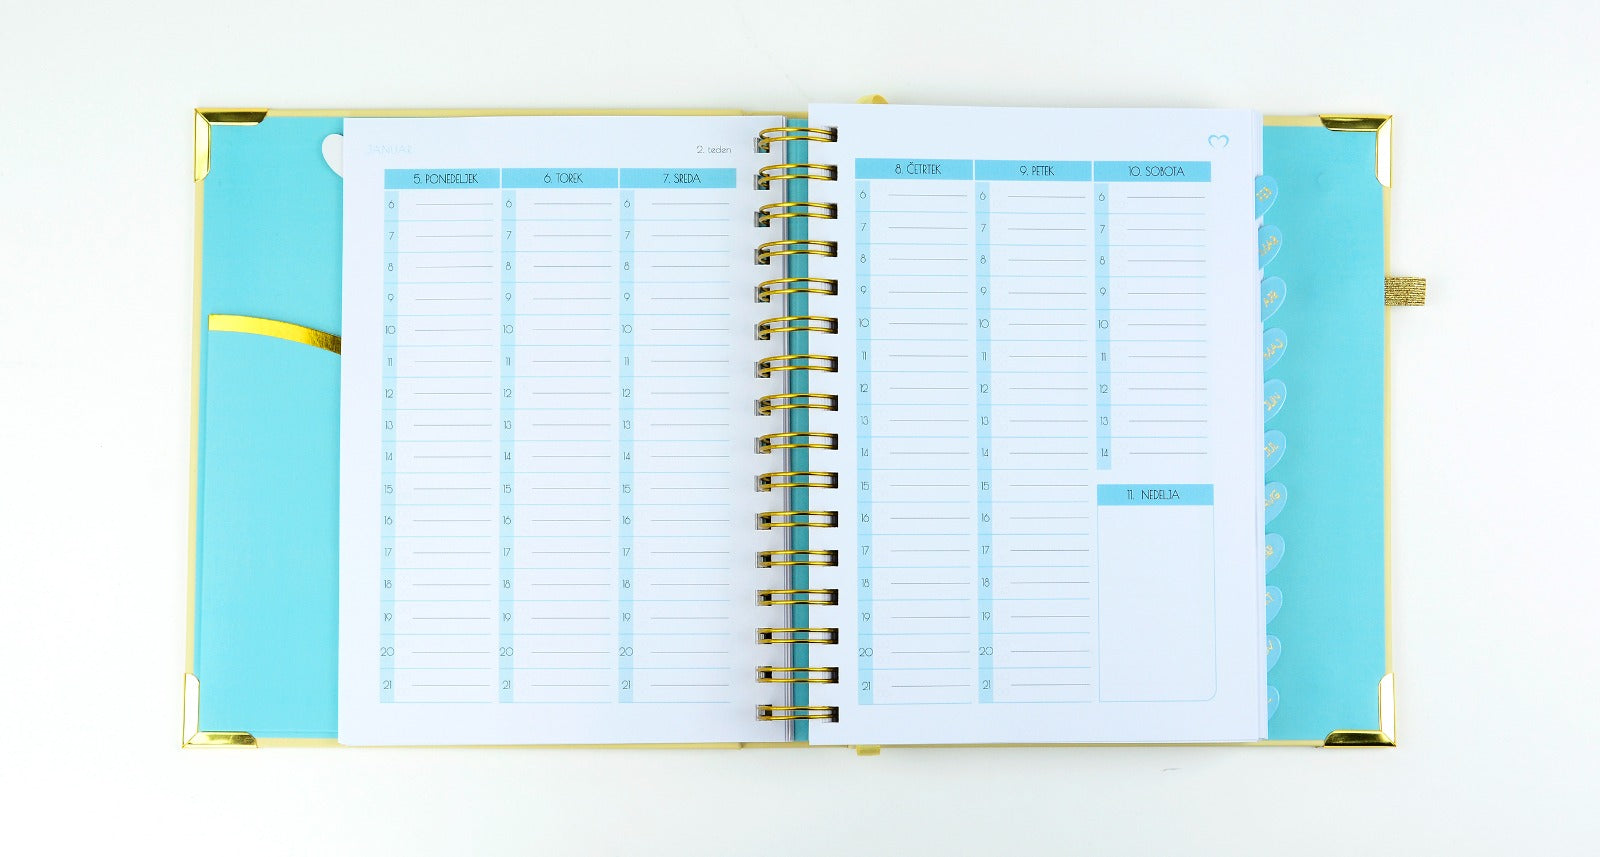 JANUAR
2. teden
5. PONEDELJEK 6. TOREK 7. SREDA
6 6 6
7 7 7
8 8 8
9 9 9
10 10 10
11 11 11
12 12 12
13 13 13
14 14 14
15 15 15
16 16 16
17 17 17
18 18 18
19 19 19
20 20 20
21 21 21
8. ČETRTEK 9. PETEK 10. SOBOTA
6 6 6
7 7 7
8 8 8
9 9 9
10 10 10
11 11 11
12 12 12
13 13 13
14 14 14
15 15
11. NEDELJA
16 16
17 17
18 18
19 19
20 20
21 21
FEB
MAR
APR
MAJ
JUN
JUL
AVG